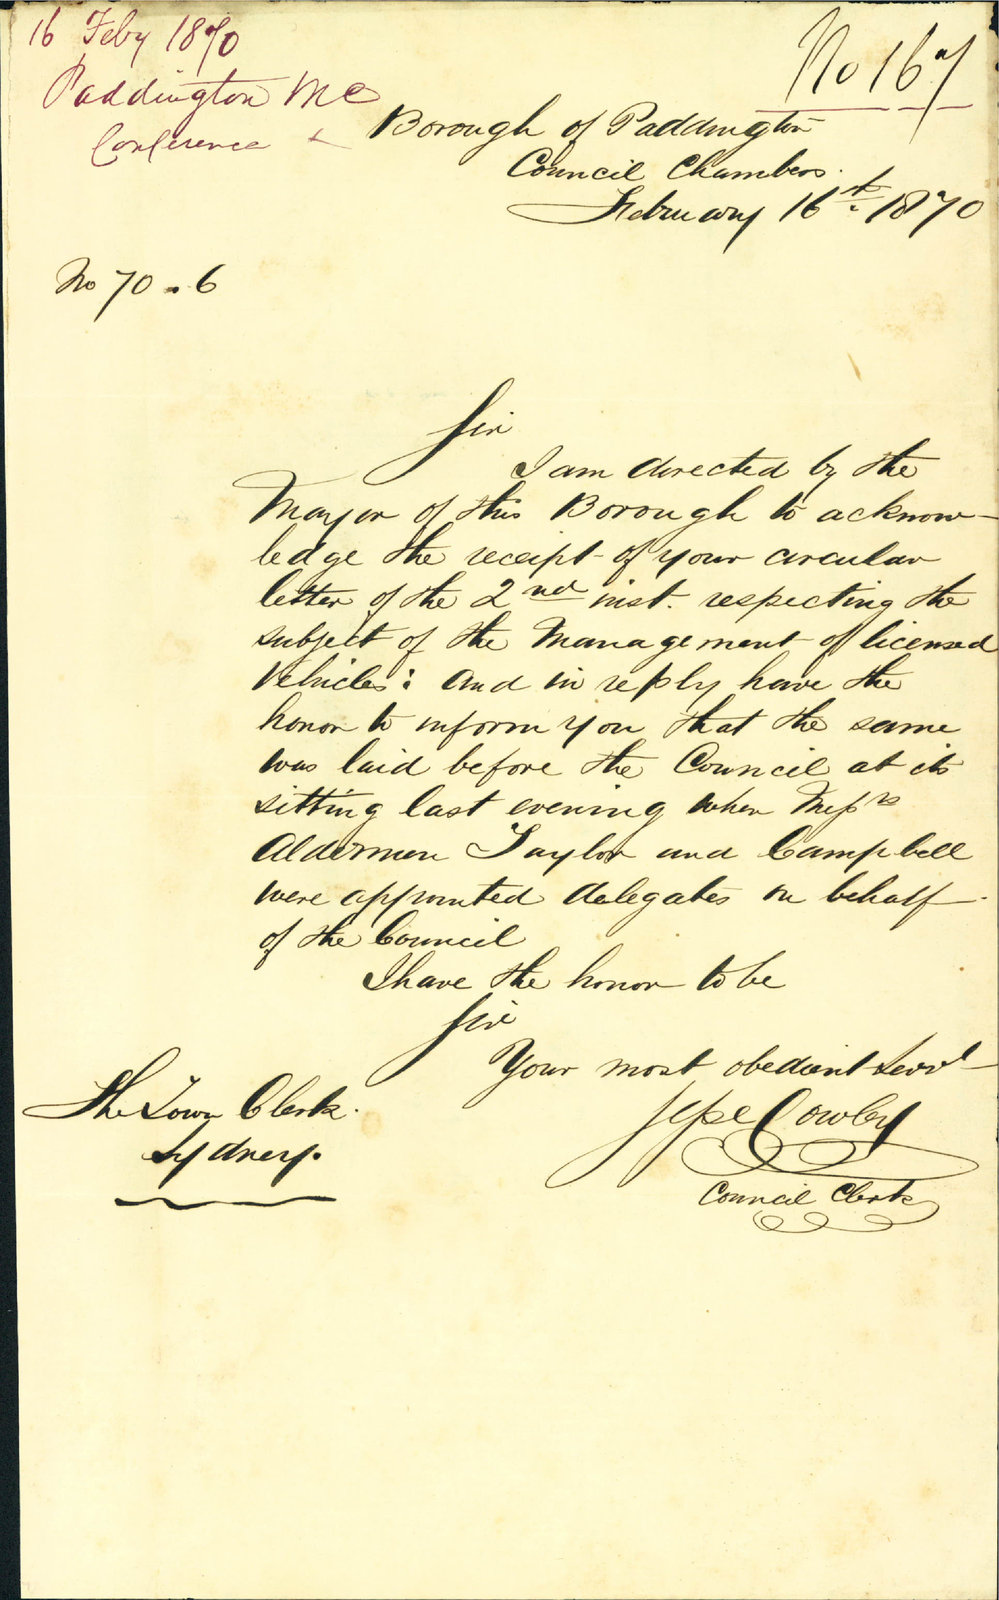 16 Feby 1870
Paddington MC
Conference
No 167
Borough of Paddington
Council Chambers.
February 16th. 1870
No 70.6
Sir
I am directed by the
Mayor of this Borough to acknow-
ledge the receipt of your circular
letter of the 2nd inst. respecting the
subject of the Management of licensed
Vehicles: and in reply have the
honor to inform you that the same
was laid before the Council at its
sitting last evening when Messrs
Aldermen Taylor and Campbell
were appointed delegates on behalf
of the Council
I have the honor to be
Sir
Your most obedient Servt
Cowley
Council Clerk
The Town Clerk.
Sydney.